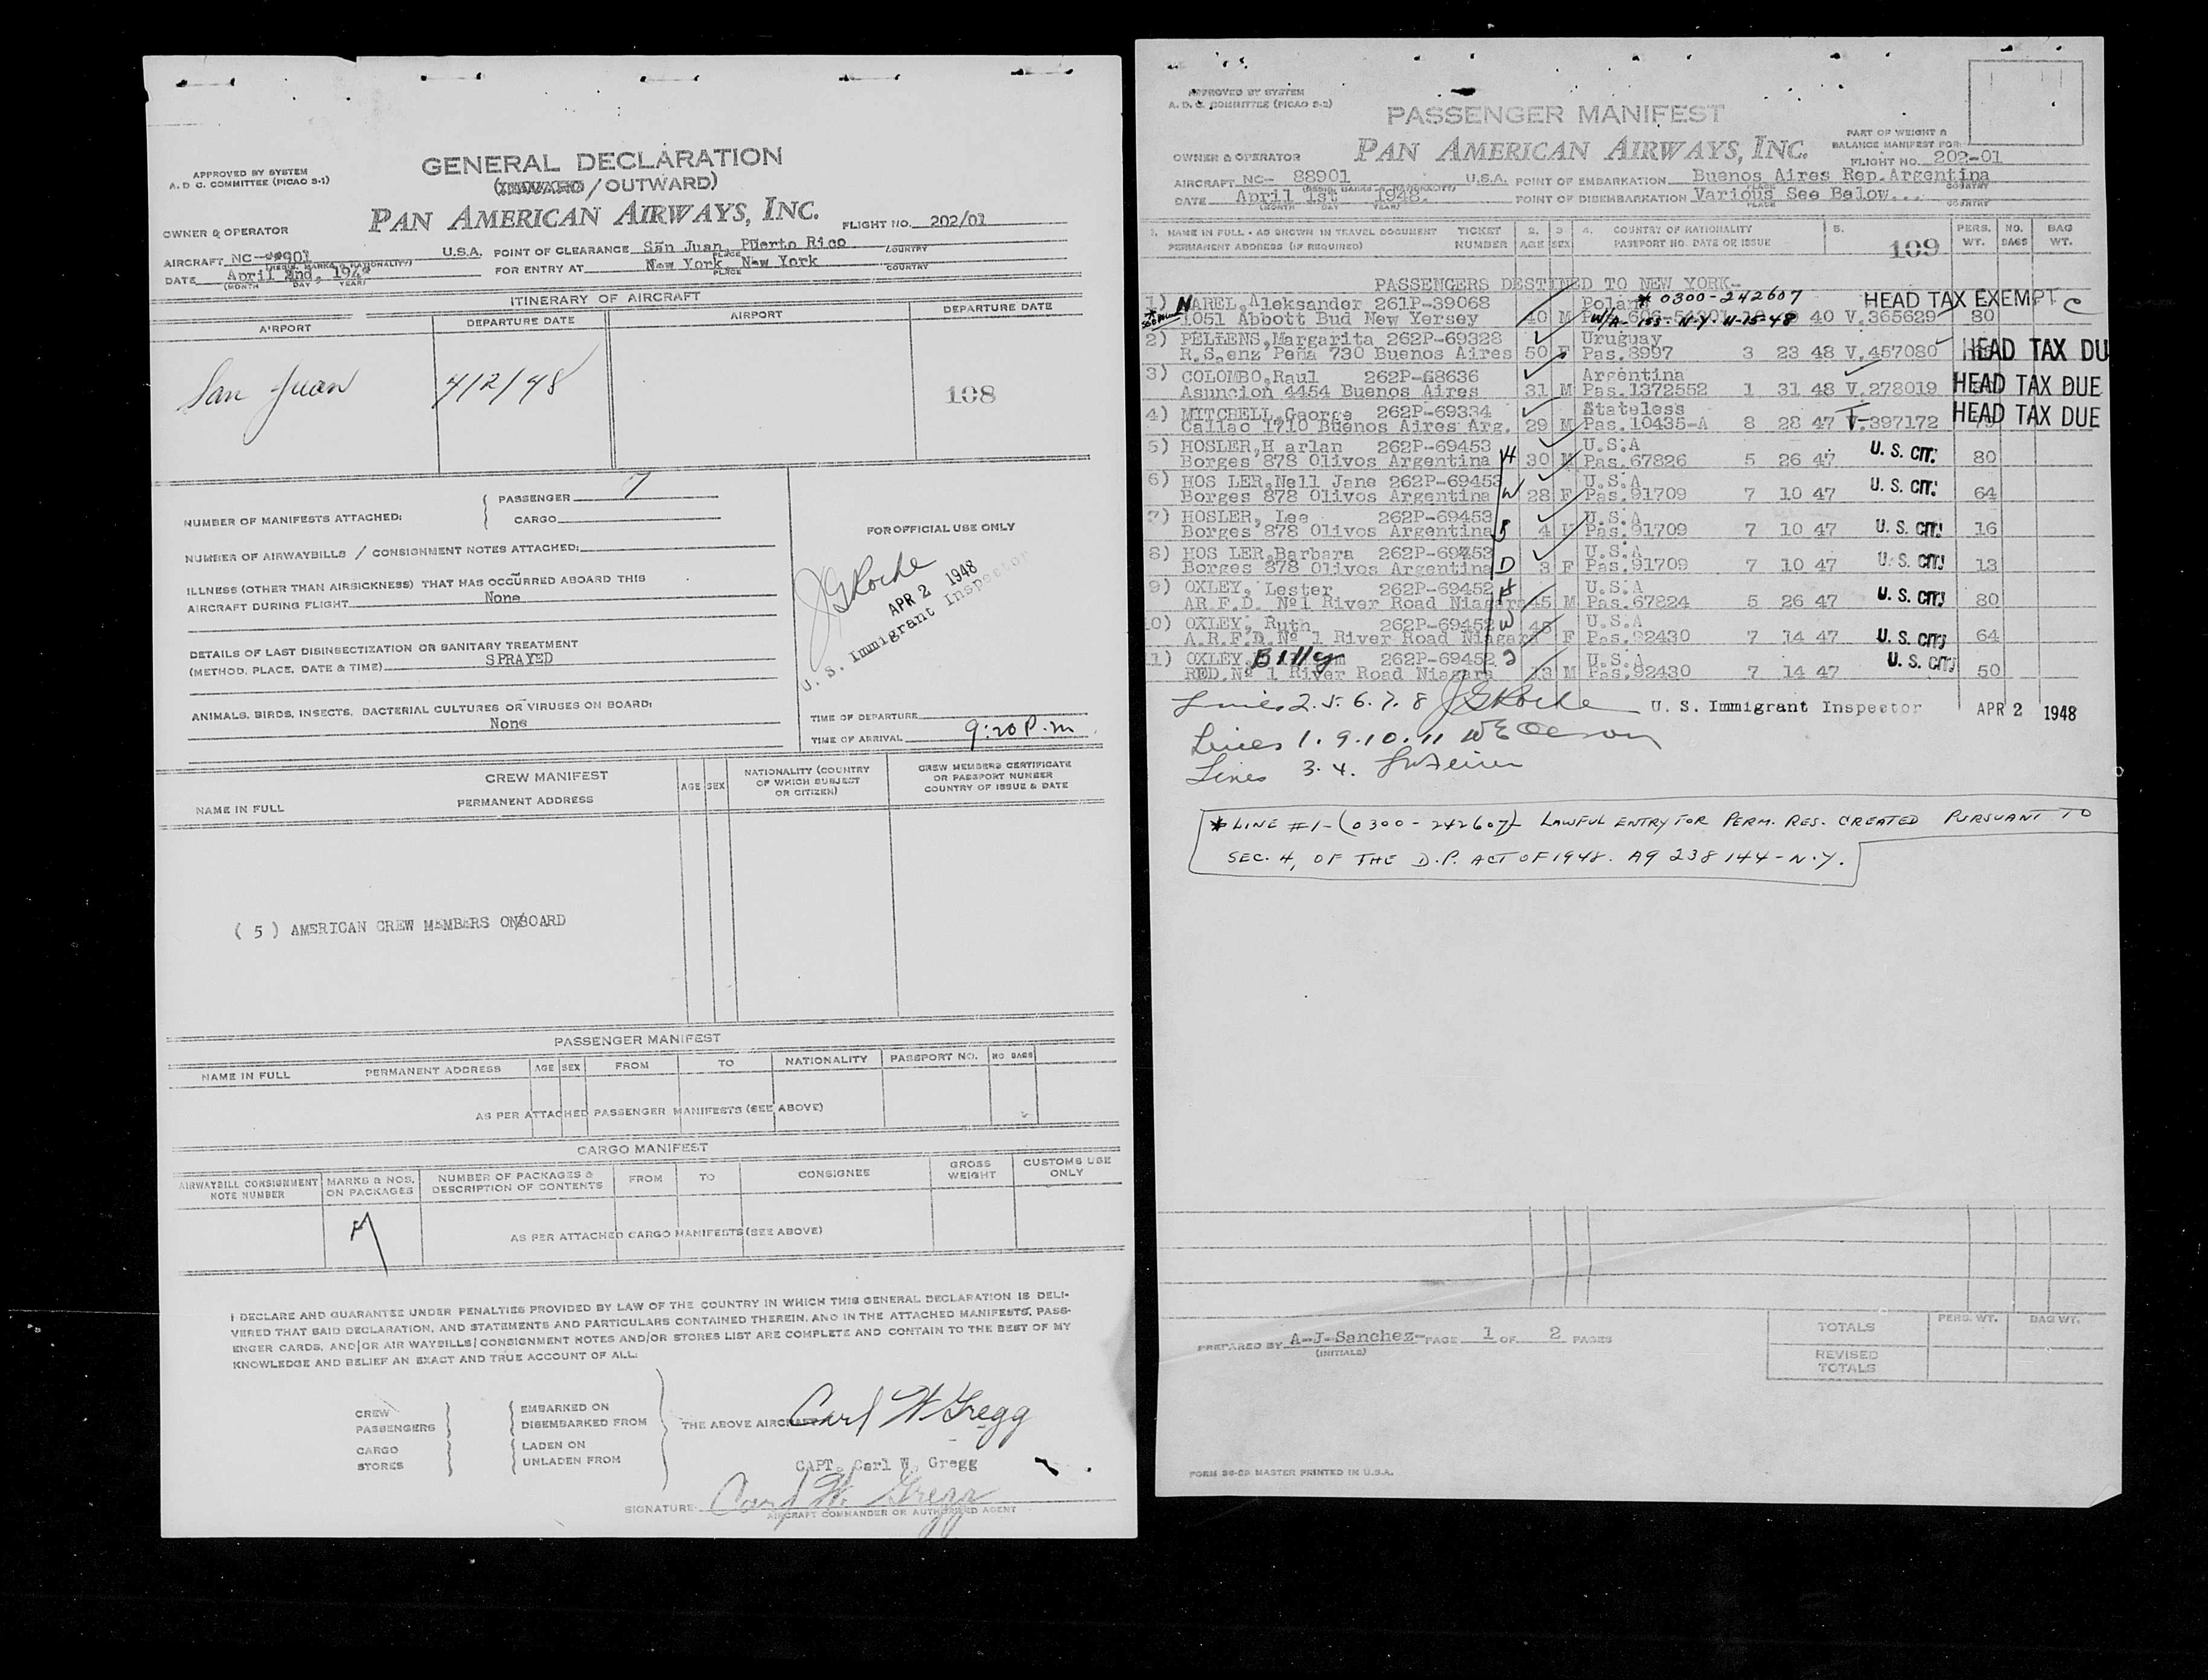 APPROVED BY SYSTEM
A. D. C. COMMITTEE (PICAO S-1)
GENERAL DECLARATION
(INWARD / OUTWARD)
PAN AMERICAN AIRWAYS, INC.
FLIGHT NO. 202/01
OWNER & OPERATOR
AIRCRAFT NC- 901 U.S.A. POINT OF CLEARANCE San Juan, Puerto Rico
(REGIS. MARKS & NATIONALITY) PLACE COUNTRY
DATE April 2nd, 194 FOR ENTRY AT New York, New York
(MONTH DAY YEAR) PLACE COUNTRY
ITINERARY OF AIRCRAFT
AIRPORT DEPARTURE DATE AIRPORT DEPARTURE DATE
San Juan 4/2/48 108
NUMBER OF MANIFESTS ATTACHED: PASSENGER
CARGO
NUMBER OF AIRWAYBILLS / CONSIGNMENT NOTES ATTACHED:
ILLNESS (OTHER THAN AIRSICKNESS) THAT HAS OCCURRED ABOARD THIS
AIRCRAFT DURING FLIGHT None
DETAILS OF LAST DISINSECTIZATION OR SANITARY TREATMENT
(METHOD, PLACE, DATE & TIME) SPRAYED
ANIMALS, BIRDS, INSECTS, BACTERIAL CULTURES OR VIRUSES ON BOARD:
None
FOR OFFICIAL USE ONLY
JGRoche
APR 2 1948
U. S. Immigrant Inspector
TIME OF DEPARTURE
TIME OF ARRIVAL 9:20 P.m
CREW MANIFEST
NAME IN FULL PERMANENT ADDRESS AGE SEX NATIONALITY (COUNTRY OF WHICH SUBJECT OR CITIZEN) CREW MEMBERS CERTIFICATE OR PASSPORT NUMBER COUNTRY OF ISSUE & DATE
( 5 ) AMERICAN CREW MEMBERS ONBOARD
PASSENGER MANIFEST
NAME IN FULL PERMANENT ADDRESS AGE SEX FROM TO NATIONALITY PASSPORT NO. NO BAGS
AS PER ATTACHED PASSENGER MANIFESTS (SEE ABOVE)
CARGO MANIFEST
AIRWAYBILL CONSIGNMENT NOTE NUMBER MARKS & NOS. ON PACKAGES NUMBER OF PACKAGES & DESCRIPTION OF CONTENTS FROM TO CONSIGNEE GROSS WEIGHT CUSTOMS USE ONLY
AS PER ATTACHED CARGO MANIFESTS (SEE ABOVE)
I DECLARE AND GUARANTEE UNDER PENALTIES PROVIDED BY LAW OF THE COUNTRY IN WHICH THIS GENERAL DECLARATION IS DELI-
VERED THAT SAID DECLARATION, AND STATEMENTS AND PARTICULARS CONTAINED THEREIN, AND IN THE ATTACHED MANIFESTS, PASS-
ENGER CARDS, AND/OR AIR WAYBILLS/CONSIGNMENT NOTES AND/OR STORES LIST ARE COMPLETE AND CONTAIN TO THE BEST OF MY
KNOWLEDGE AND BELIEF AN EXACT AND TRUE ACCOUNT OF ALL:
CREW EMBARKED ON
PASSENGERS DISEMBARKED FROM THE ABOVE AIRCRAFT Carl W Gregg
CARGO LADEN ON
STORES UNLADEN FROM
CAPT. Carl W. Gregg
SIGNATURE: Carl W. Gregg
AIRCRAFT COMMANDER OR AUTHORISED AGENT
APPROVED BY SYSTEM
A. D. C. COMMITTEE (PICAO S-2)
PASSENGER MANIFEST
PAN AMERICAN AIRWAYS, INC.
PART OF WEIGHT &
BALANCE MANIFEST FOR:
FLIGHT NO. 202-01
OWNER & OPERATOR
AIRCRAFT NC- 88901 U.S.A. POINT OF EMBARKATION Buenos Aires Rep.Argentina
(REGIS. MARKS & NATIONALITY) PLACE COUNTRY
DATE April 1st 1948. POINT OF DISEMBARKATION Various See Below...
(MONTH DAY YEAR) PLACE COUNTRY
1. NAME IN FULL - AS SHOWN IN TRAVEL DOCUMENT TICKET 2. 3 4. COUNTRY OF NATIONALITY 5. PERS. NO. BAG
PERMANENT ADDRESS (IF REQUIRED) NUMBER AGE SEX PASSPORT NO. DATE OR ISSUE 109 WT. BAGS WT.
PASSENGERS DESTINED TO NEW YORK-
1) NAREL,Aleksander 261P-39068 Poland * 0300-242607 HEAD TAX EXEMPT C
1051 Abbott Bud New Yersey 40 M 40 V.365629 80
2) PELLENS,Margarita 262P-69328 Uruguay
R.S.enz Peña 730 Buenos Aires 50 F Pas.8997 3 23 48 V.457080 HEAD TAX DU
3) COLOMBO,Raul 262P-68636 Argentina
Asuncion 4454 Buenos Aires 31 M Pas.1372552 1 31 48 V.278019 HEAD TAX DUE
4) MITCHELL,George 262P-69334 Stateless
Callao 1710 Buenos Aires Arg. 29 M Pas.10435-A 8 28 47 V.397172 HEAD TAX DUE
5) HOSLER,H arlan 262P-69453 U.S.A
Borges 878 Olivos Argentina H 30 M Pas.67826 5 26 47 U. S. CIT. 80
6) HOS LER,Nell Jane 262P-69453 U.S.A
Borges 878 Olivos Argentina W 28 F Pas.91709 7 10 47 U. S. CIT. 64
7) HOSLER, Lee 262P-69453 U.S.A
Borges 878 Olivos Argentina S 4 M Pas.91709 7 10 47 U. S. CIT. 16
8) HOS LER,Barbara 262P-69453 U.S.A
Borges 878 Olivos Argentina D 3 F Pas.91709 7 10 47 U. S. CIT. 13
9) OXLEY, Lester 262P-69452 H U.S.A
AR.F.D. Nº1 River Road Niagara 45 M Pas.67824 5 26 47 U. S. CIT. 80
10) OXLEY, Ruth 262P-69452 W 45 U.S.A
A.R.F.D.Nº 1 River Road Niagara F Pas.92430 7 14 47 U. S. CIT. 64
11) OXLEY, Billy 262P-69452 U.S.A U. S. CIT.
RED.Nº 1 River Road Niagara 13 M Pas.92430 7 14 47 50
Lines 2.5.6.7.8 JGRoche U. S. Immigrant Inspector APR 2 1948
Lines 1.9.10.11
Lines 3.4.
* LINE #1-(0300-242607)- LAWFUL ENTRY FOR PERM. RES. CREATED PURSUANT TO
SEC. 4, OF THE D.P. ACT OF 1948. A9 238 144-N.Y.
PREPARED BY A-J-Sanchez- PAGE 1 OF 2 PAGES
(INITIALS)
PERS. WT. BAG WT.
TOTALS
REVISED
TOTALS
FORM 36-SP MASTER PRINTED IN U.S.A.